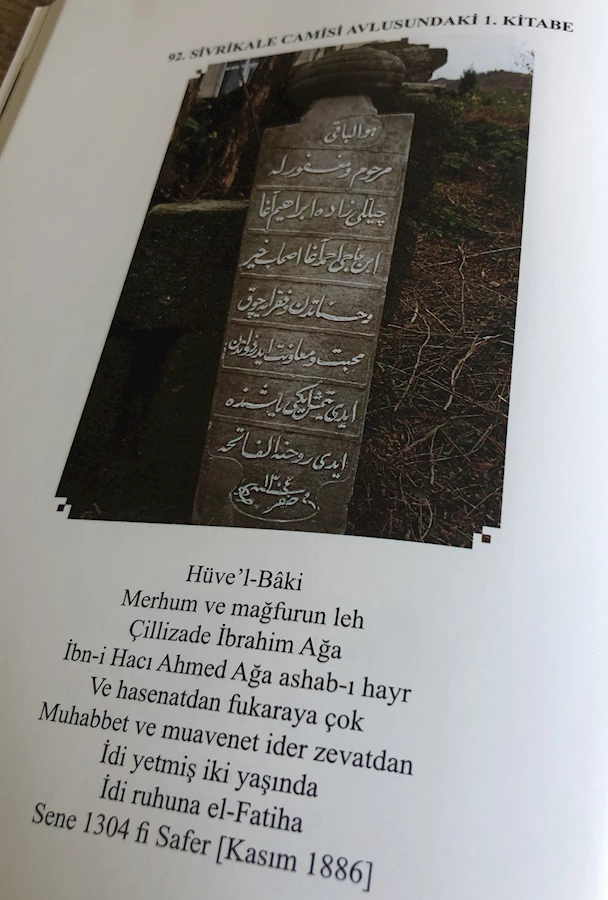 92. SİVRİKALE CAMİSİ AVLUSUNDAKİ 1. KİTABE
هوالباقی
مرحوم ومغفور له
چیللی زاده ابراهیم آغا
ابن حاجی احمد آغا اصحاب خیر
وحسناتدن فقرایه چوق
محبت ومعاونت ایدر ذواتدن
ایدی یتمش ایکی یاشنده
ایدی روحنه الفاتحه
سنه ١٣٠٤ فی صفر
Hüve’l-Bâki
Merhum ve mağfurun leh
Çillizade İbrahim Ağa
İbn-i Hacı Ahmed Ağa ashab-ı hayr
Ve hasenatdan fukaraya çok
Muhabbet ve muavenet ider zevatdan
İdi yetmiş iki yaşında
İdi ruhuna el-Fatiha
Sene 1304 fi Safer [Kasım 1886]